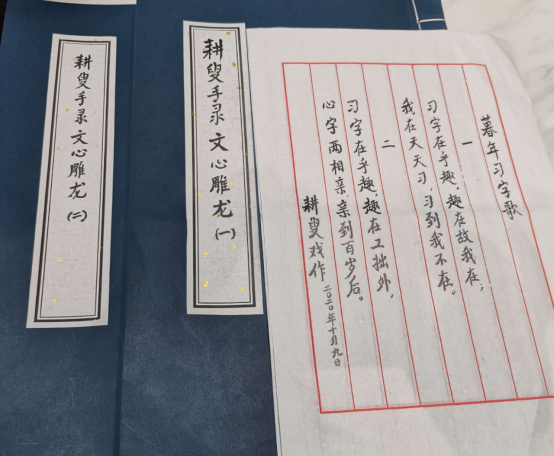 暮年习字歌
一
习字在乎趣，趣在故我在；
我在天天习，习到我不在。
二
习字在乎趣，趣在工拙外，
心字两相亲，亲到百岁后。
耕叟戏作 二〇二〇年十月九日
耕叟手录 文心雕龙（一）
耕叟手录 文心雕龙（二）